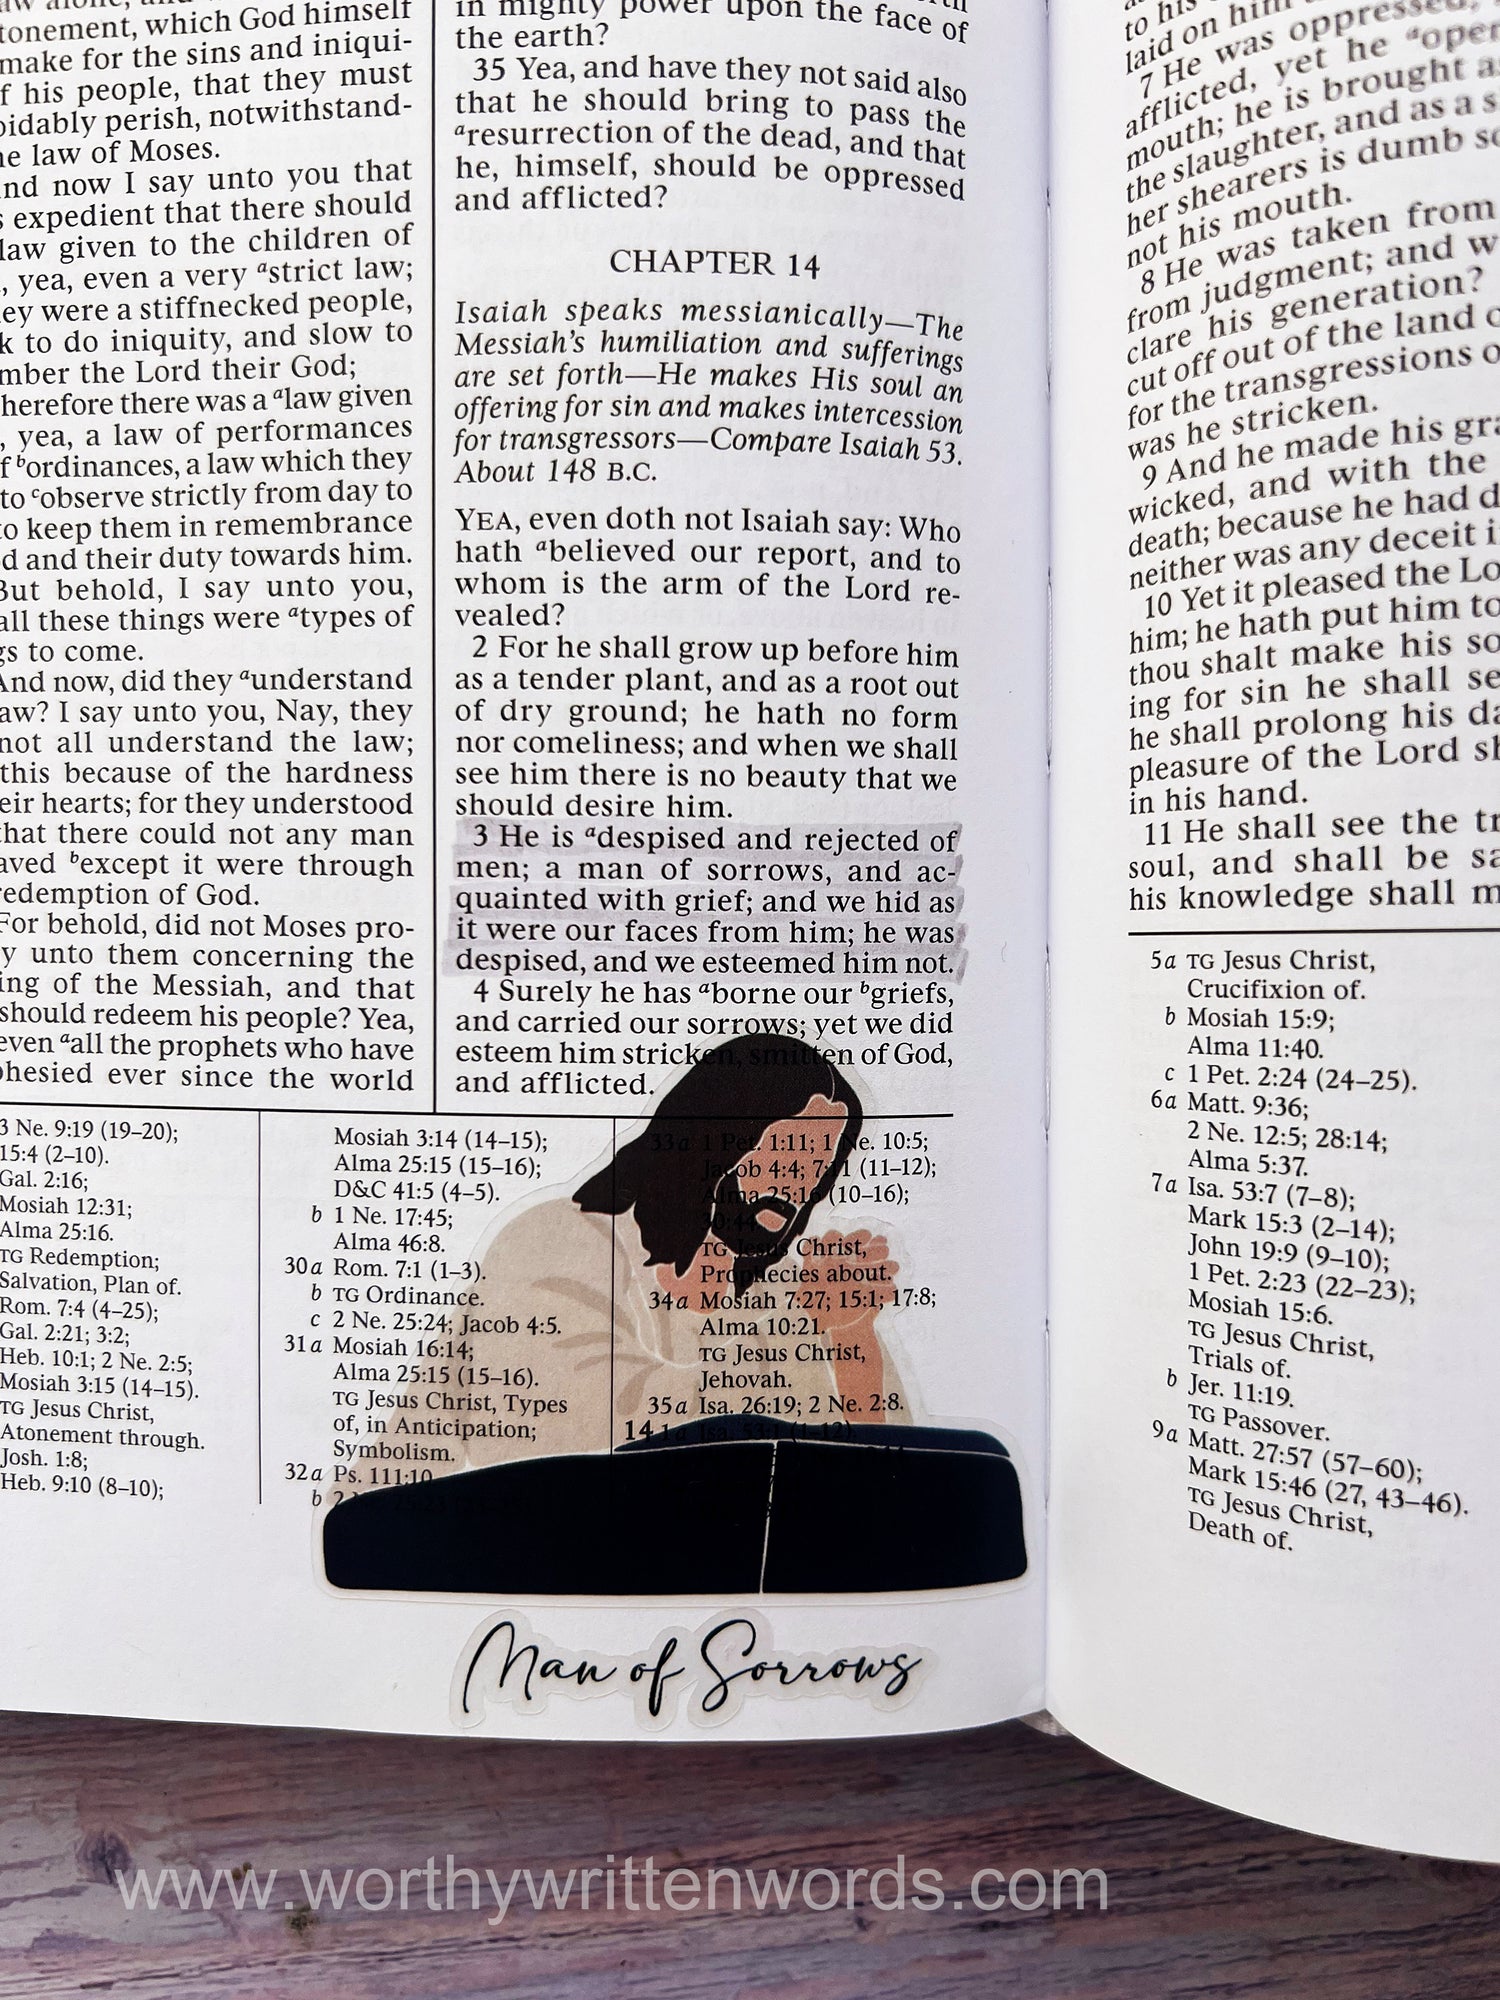 tonement, which God himself
make for the sins and iniqui-
f his people, that they must
oidably perish, notwithstand-
he law of Moses.
and now I say unto you that
s expedient that there should
law given to the children of
, yea, even a very ᵃstrict law;
ey were a stiffnecked people,
k to do iniquity, and slow to
mber the Lord their God;
herefore there was a ᵃlaw given
, yea, a law of performances
f ᵇordinances, a law which they
to ᶜobserve strictly from day to
to keep them in remembrance
d and their duty towards him.
But behold, I say unto you,
all these things were ᵃtypes of
gs to come.
And now, did they ᵃunderstand
aw? I say unto you, Nay, they
not all understand the law;
this because of the hardness
eir hearts; for they understood
that there could not any man
aved ᵇexcept it were through
redemption of God.
For behold, did not Moses pro-
y unto them concerning the
ing of the Messiah, and that
should redeem his people? Yea,
even ᵃall the prophets who have
phesied ever since the world
in mighty power upon the face of
the earth?
35 Yea, and have they not said also
that he should bring to pass the
ᵃresurrection of the dead, and that
he, himself, should be oppressed
and afflicted?
CHAPTER 14
Isaiah speaks messianically—The
Messiah's humiliation and sufferings
are set forth—He makes His soul an
offering for sin and makes intercession
for transgressors—Compare Isaiah 53.
About 148 B.C.
YEA, even doth not Isaiah say: Who
hath ᵃbelieved our report, and to
whom is the arm of the Lord re-
vealed?
2 For he shall grow up before him
as a tender plant, and as a root out
of dry ground; he hath no form
nor comeliness; and when we shall
see him there is no beauty that we
should desire him.
3 He is ᵃdespised and rejected of
men; a man of sorrows, and ac-
quainted with grief; and we hid as
it were our faces from him; he was
despised, and we esteemed him not.
4 Surely he has ᵃborne our ᵇgriefs,
and carried our sorrows; yet we did
esteem him stricken, smitten of God,
and afflicted.
3 Ne. 9:19 (19–20);
15:4 (2–10).
Gal. 2:16;
Mosiah 12:31;
Alma 25:16.
TG Redemption;
Salvation, Plan of.
Rom. 7:4 (4–25);
Gal. 2:21; 3:2;
Heb. 10:1; 2 Ne. 2:5;
Mosiah 3:15 (14–15).
TG Jesus Christ,
Atonement through.
Josh. 1:8;
Heb. 9:10 (8–10);
Mosiah 3:14 (14–15);
Alma 25:15 (15–16);
D&C 41:5 (4–5).
b 1 Ne. 17:45;
Alma 46:8.
30a Rom. 7:1 (1–3).
b TG Ordinance.
c 2 Ne. 25:24; Jacob 4:5.
31a Mosiah 16:14;
Alma 25:15 (15–16).
TG Jesus Christ, Types
of, in Anticipation;
Symbolism.
32a Ps. 111:10
b 2
33a 1 Pet. 1:11; 1 Ne. 10:5;
Jacob 4:4; 7:11 (11–12);
Alma 25:16 (10–16);
30:44.
TG Jesus Christ,
Prophecies about.
34a Mosiah 7:27; 15:1; 17:8;
Alma 10:21.
TG Jesus Christ,
Jehovah.
35a Isa. 26:19; 2 Ne. 2:8.
14 1a Isa. 53:1 (1–12).
Man of Sorrows
to his
laid on him
7 He was oppressed,
afflicted, yet he ᵃoper
mouth; he is brought a
the slaughter, and as a s
her shearers is dumb so
not his mouth.
8 He was taken from
from judgment; and w
clare his generation?
cut off out of the land o
for the transgressions o
was he stricken.
9 And he made his gra
wicked, and with the
death; because he had d
neither was any deceit i
10 Yet it pleased the Lo
him; he hath put him to
thou shalt make his so
ing for sin he shall se
he shall prolong his da
pleasure of the Lord sh
in his hand.
11 He shall see the tr
soul, and shall be sa
his knowledge shall m
5a TG Jesus Christ,
Crucifixion of.
b Mosiah 15:9;
Alma 11:40.
c 1 Pet. 2:24 (24–25).
6a Matt. 9:36;
2 Ne. 12:5; 28:14;
Alma 5:37.
7a Isa. 53:7 (7–8);
Mark 15:3 (2–14);
John 19:9 (9–10);
1 Pet. 2:23 (22–23);
Mosiah 15:6.
TG Jesus Christ,
Trials of.
b Jer. 11:19.
TG Passover.
9a Matt. 27:57 (57–60);
Mark 15:46 (27, 43–46).
TG Jesus Christ,
Death of.
www.worthywrittenwords.com